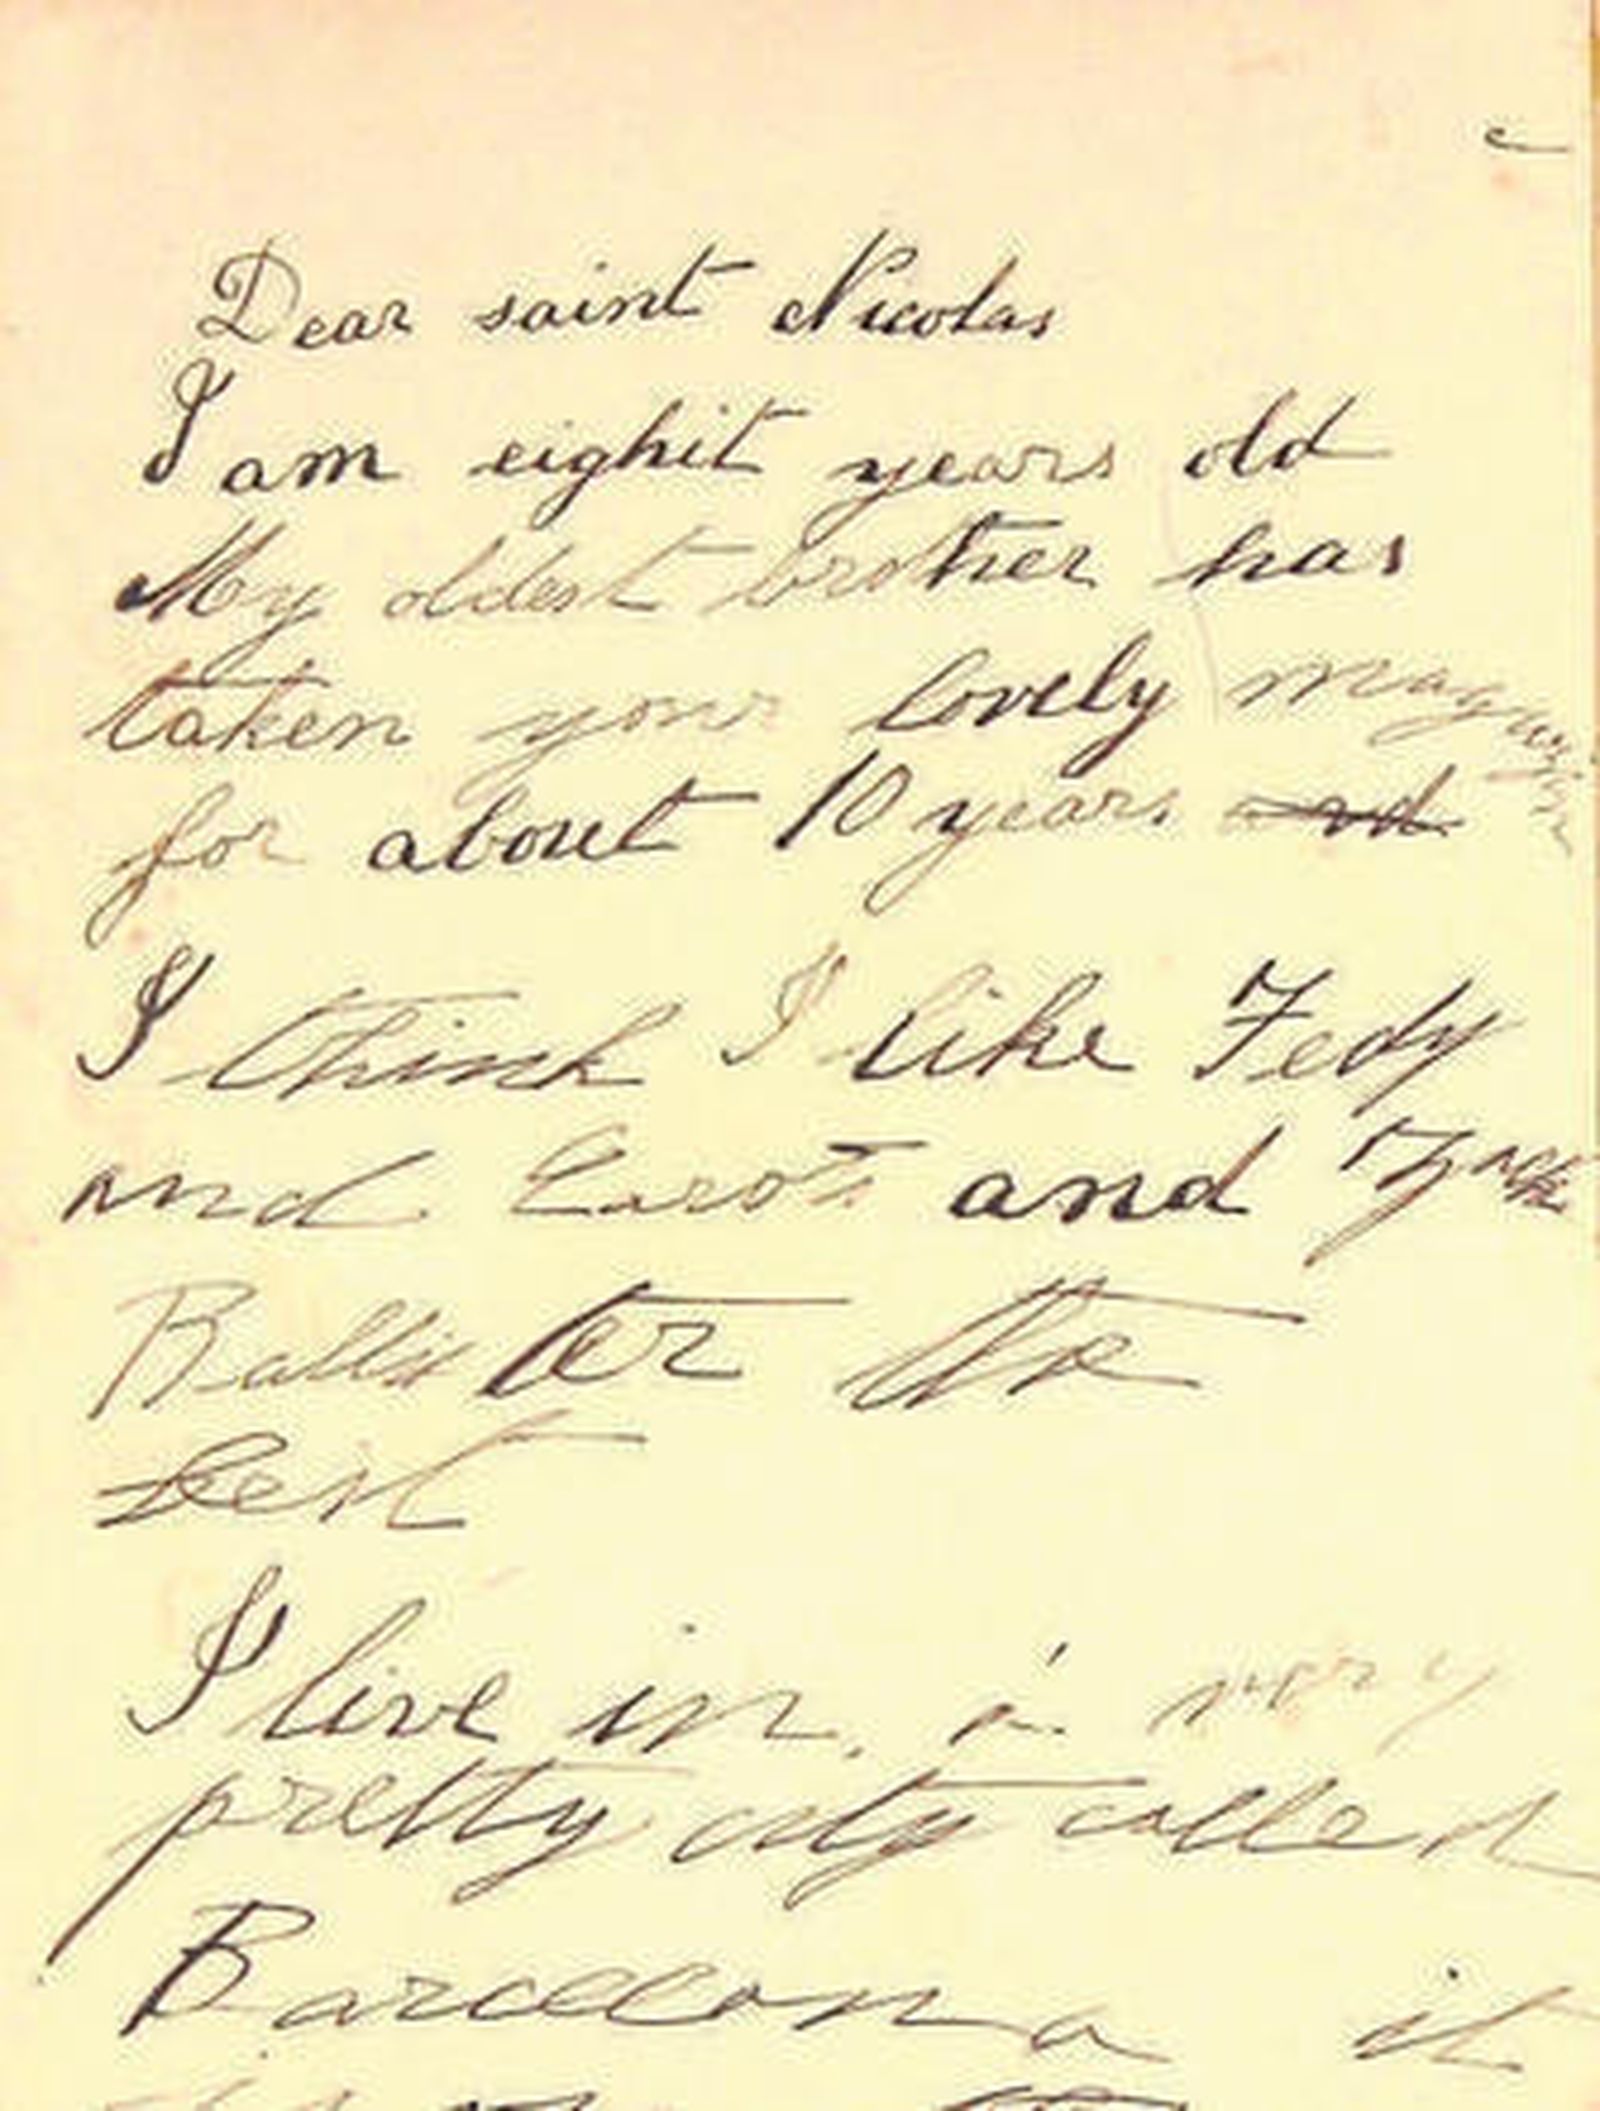 Dear saint Nicolas
I am eighit years old
My oldest brother has
taken your lovely magazin
for about 10 years and
I think I like Tedy
and Carots and Zack
Ballister the
best
I live in a very
pretty city called
Barcelona it